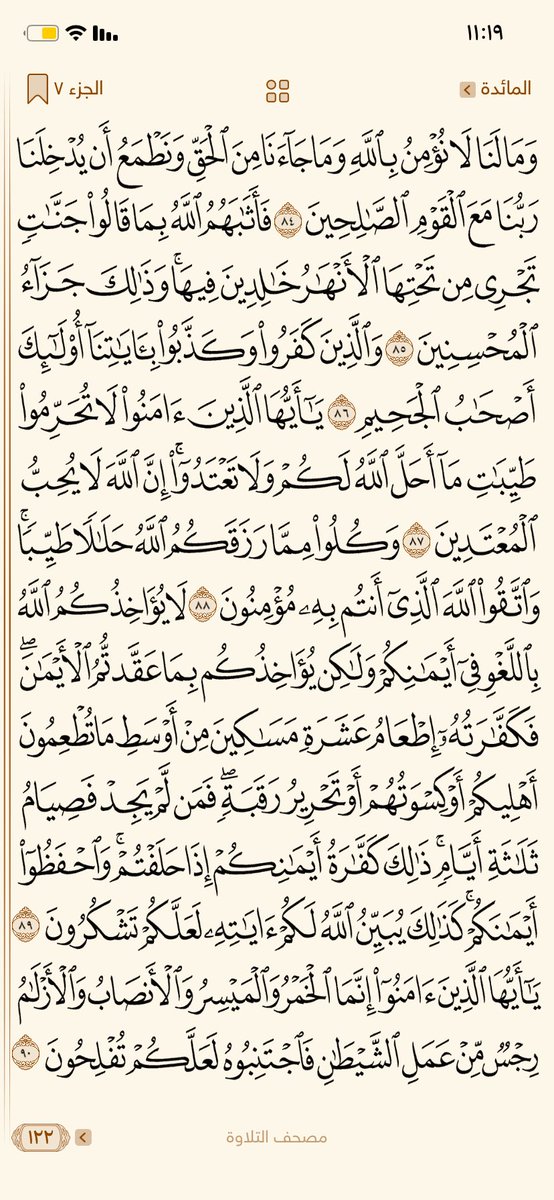 ١١:١٩
المائدة
الجزء ٧
وَمَا لَنَا لَا نُؤْمِنُ بِٱللَّهِ وَمَا جَآءَنَا مِنَ ٱلْحَقِّ وَنَطْمَعُ أَن يُدْخِلَنَا
رَبُّنَا مَعَ ٱلْقَوْمِ ٱلصَّٰلِحِينَ ٨٤ فَأَثَٰبَهُمُ ٱللَّهُ بِمَا قَالُوا۟ جَنَّٰتٍ
تَجْرِى مِن تَحْتِهَا ٱلْأَنْهَٰرُ خَٰلِدِينَ فِيهَا ۚ وَذَٰلِكَ جَزَآءُ
ٱلْمُحْسِنِينَ ٨٥ وَٱلَّذِينَ كَفَرُوا۟ وَكَذَّبُوا۟ بِـَٔايَٰتِنَآ أُو۟لَٰٓئِكَ
أَصْحَٰبُ ٱلْجَحِيمِ ٨٦ يَٰٓأَيُّهَا ٱلَّذِينَ ءَامَنُوا۟ لَا تُحَرِّمُوا۟
طَيِّبَٰتِ مَآ أَحَلَّ ٱللَّهُ لَكُمْ وَلَا تَعْتَدُوٓا۟ ۚ إِنَّ ٱللَّهَ لَا يُحِبُّ
ٱلْمُعْتَدِينَ ٨٧ وَكُلُوا۟ مِمَّا رَزَقَكُمُ ٱللَّهُ حَلَٰلًا طَيِّبًا ۚ
وَٱتَّقُوا۟ ٱللَّهَ ٱلَّذِىٓ أَنتُم بِهِۦ مُؤْمِنُونَ ٨٨ لَا يُؤَاخِذُكُمُ ٱللَّهُ
بِٱللَّغْوِ فِىٓ أَيْمَٰنِكُمْ وَلَٰكِن يُؤَاخِذُكُم بِمَا عَقَّدتُّمُ ٱلْأَيْمَٰنَ ۖ
فَكَفَّٰرَتُهُۥٓ إِطْعَامُ عَشَرَةِ مَسَٰكِينَ مِنْ أَوْسَطِ مَا تُطْعِمُونَ
أَهْلِيكُمْ أَوْ كِسْوَتُهُمْ أَوْ تَحْرِيرُ رَقَبَةٍ ۖ فَمَن لَّمْ يَجِدْ فَصِيَامُ
ثَلَٰثَةِ أَيَّامٍ ۚ ذَٰلِكَ كَفَّٰرَةُ أَيْمَٰنِكُمْ إِذَا حَلَفْتُمْ ۚ وَٱحْفَظُوٓا۟
أَيْمَٰنَكُمْ ۚ كَذَٰلِكَ يُبَيِّنُ ٱللَّهُ لَكُمْ ءَايَٰتِهِۦ لَعَلَّكُمْ تَشْكُرُونَ ٨٩
يَٰٓأَيُّهَا ٱلَّذِينَ ءَامَنُوٓا۟ إِنَّمَا ٱلْخَمْرُ وَٱلْمَيْسِرُ وَٱلْأَنصَابُ وَٱلْأَزْلَٰمُ
رِجْسٌ مِّنْ عَمَلِ ٱلشَّيْطَٰنِ فَٱجْتَنِبُوهُ لَعَلَّكُمْ تُفْلِحُونَ ٩٠
مصحف التلاوة
١٢٢